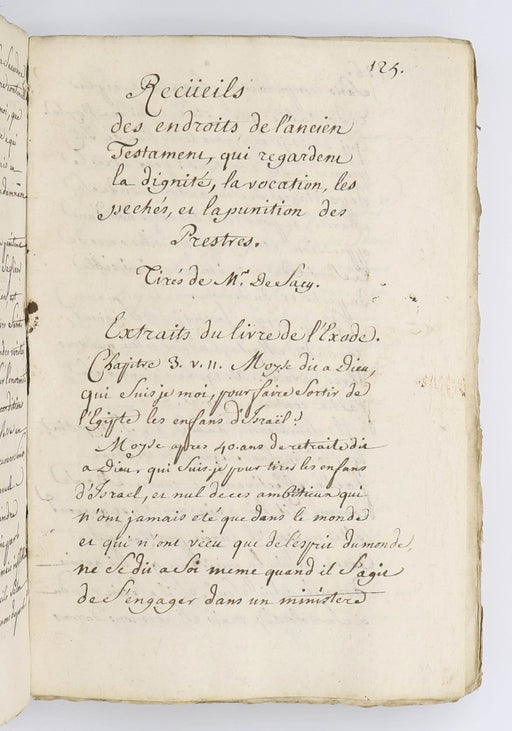 125.
Recüeils
des endroits de l'ancien
Testament, qui regardent
la dignité, la vocation, les
pechés, et la punition des
Prestres.
Tirés de Mr. De Sacy.
Extraits du livre de l'Exode.
Chapitre 3. v. 11. Moyse dit a Dieu,
qui suis je moi, pour faire sortir de
l'Egipte les enfans d'Israël?
Moyse apres 40. ans de retraite dit
a Dieu, qui suis je pour tirer les enfans
d'Israel, et nul de ces ambitieux qui
n'ont jamais eté que dans le monde
et qui n'ont vecu que de l'esprit du monde,
ne se dit a soi meme quand il s'agit
de s'engager dans un ministere